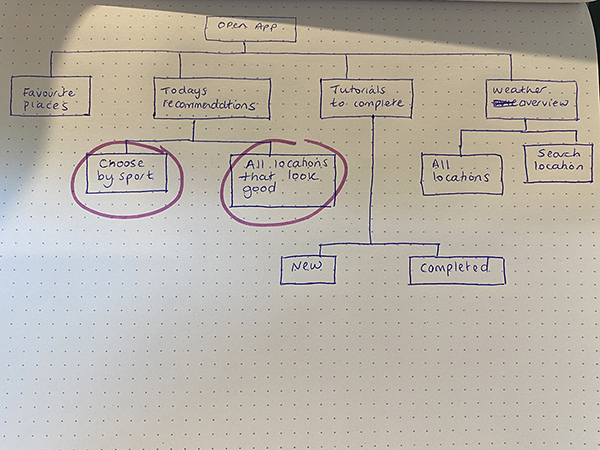 Open App
Favourite
places
Todays
recommendations
Tutorials
to complete
Weather
overview
Choose
by sport
All locations
that look
good
All
locations
Search
location
New
Completed